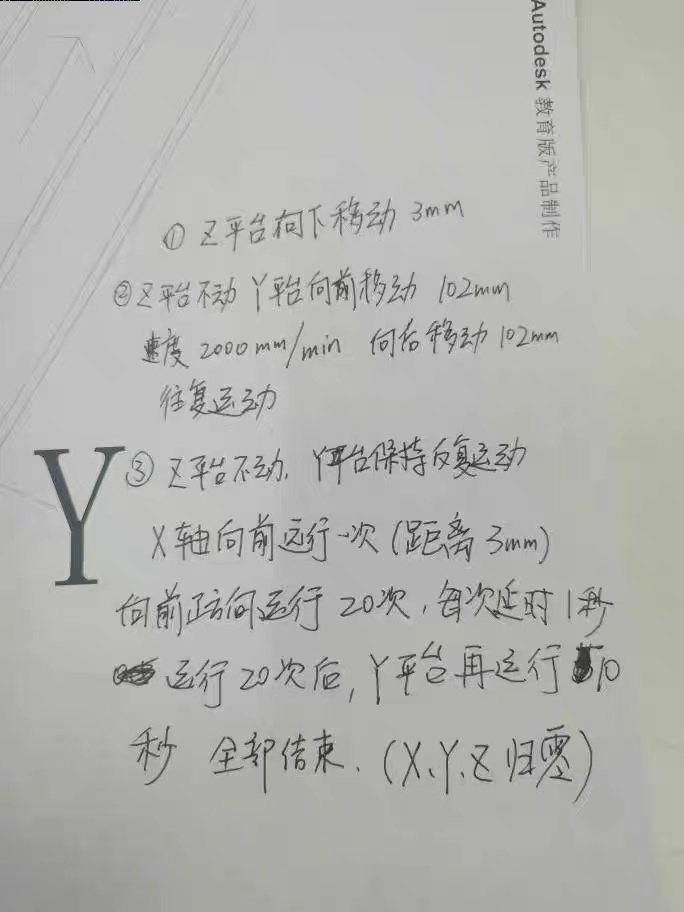 Autodesk 教育版产品制作
① Z平台向下移动 3mm
② Z平台不动 Y平台向前移动 102mm
速度 2000mm/min 向后移动 102mm
往复运动
Y
③ Z平台不动. Y平台保持反复运动
X轴向前运行一次 (距离 3mm)
向前正方向运行 20次, 每次延时 1秒
运行 20次后, Y平台再运行 10
秒 全部结束. (X、Y、Z 归零)